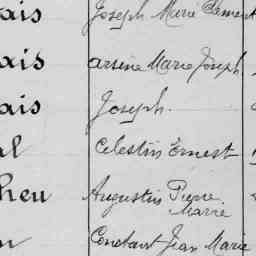 ais Joseph Marie Clement
ais Arsène Marie Joseph
ais Joseph.
al Celestin Ernest
heu Augustin Pierre
Marie
n Constant Jean Marie